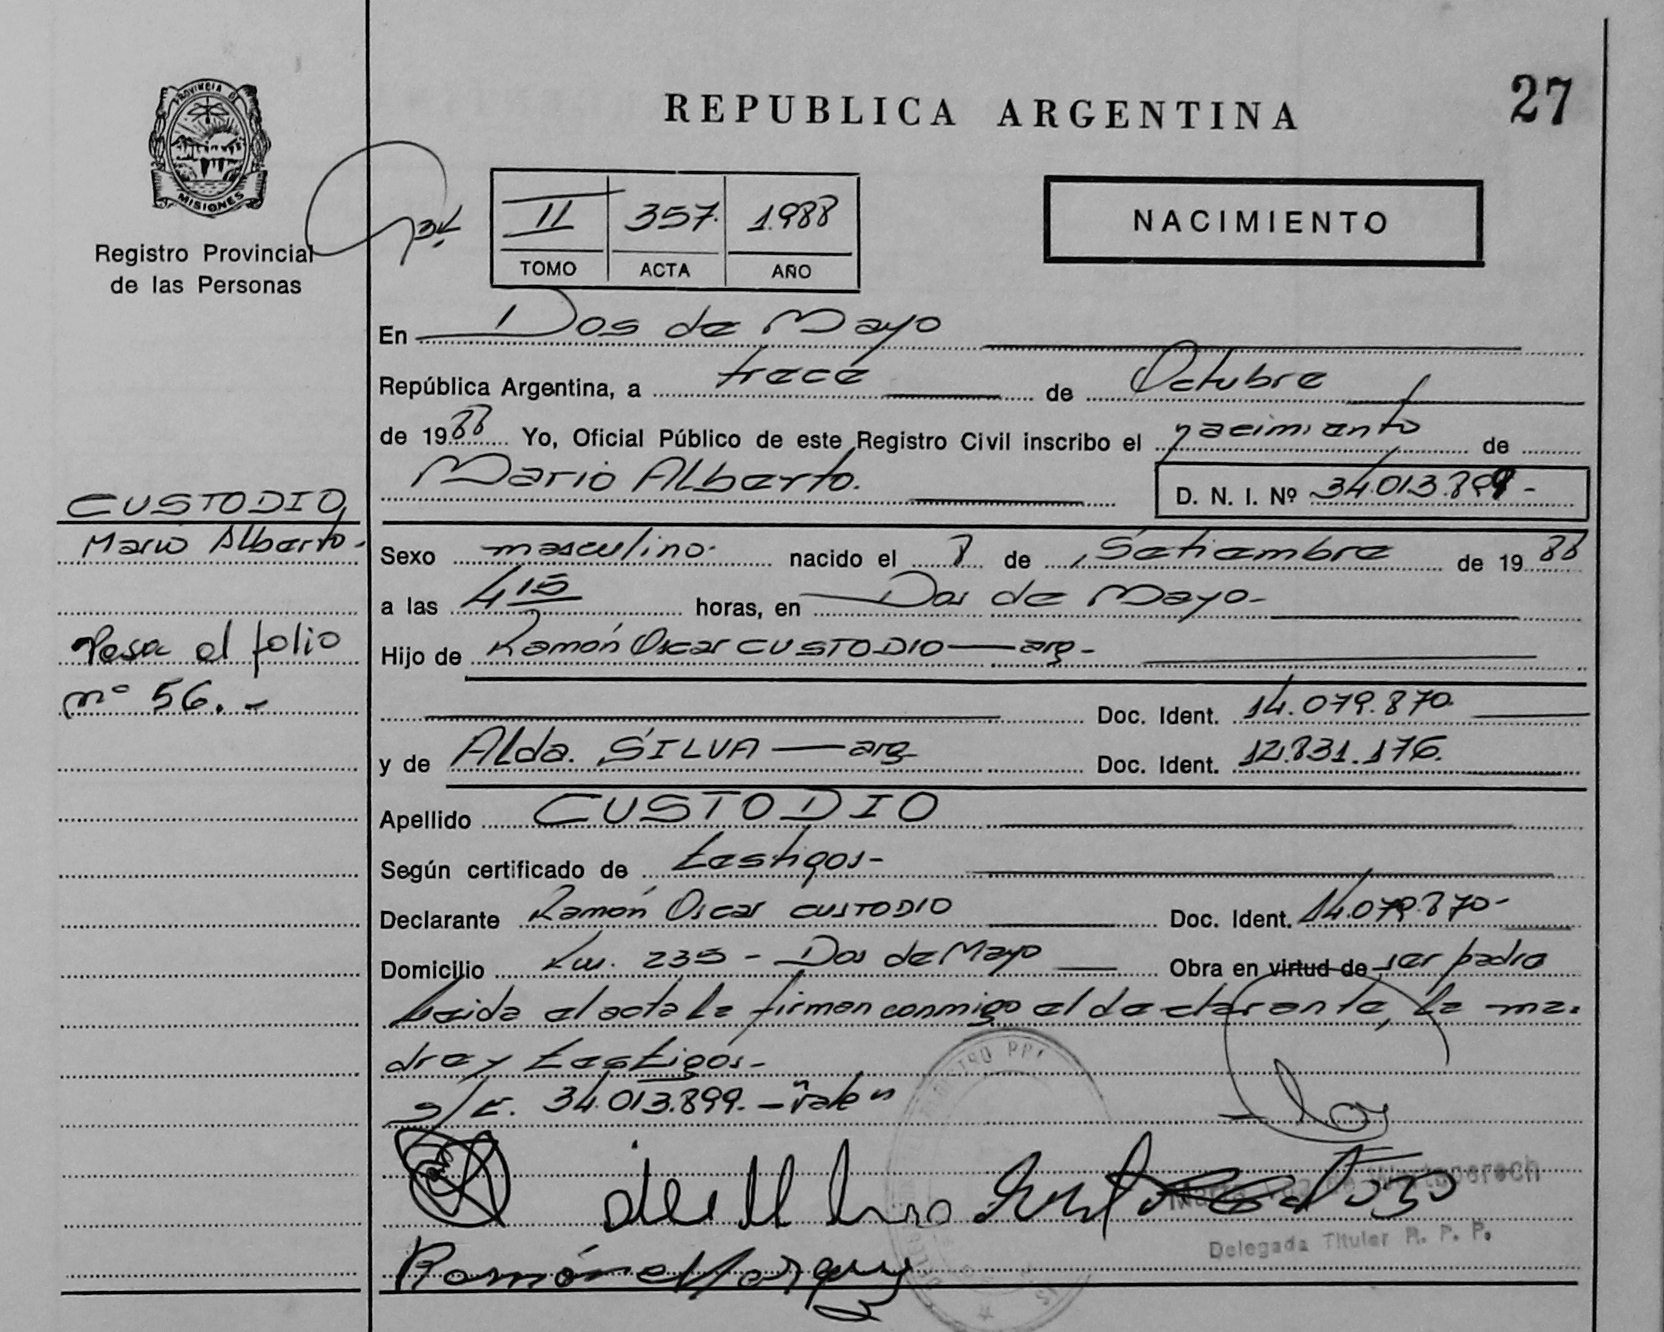 27
REPUBLICA ARGENTINA
PROVINCIA DE
MISIONES
Registro Provincial
de las Personas
II 357 1.988
TOMO ACTA AÑO
NACIMIENTO
En Dos de Mayo
República Argentina, a trece de Octubre
de 1988 Yo, Oficial Público de este Registro Civil inscribo el nacimiento de
Mario Alberto. D. N. I. Nº 34.013.899 -
CUSTODIO,
Mario Alberto.
Sexo masculino. nacido el 8 de Setiembre de 1988
a las 4 15 horas, en Dos de Mayo-
Pasa al folio
nº 56. -
Hijo de Ramón Oscar CUSTODIO — arg -
Doc. Ident. 14.079.870.
y de Alda. SILVA — arg Doc. Ident. 12.831.176.
Apellido CUSTODIO
Según certificado de testigos-
Declarante Ramón Oscar CUSTODIO Doc. Ident. 14.079.870-
Domicilio Km. 235 - Dos de Mayo Obra en virtud de ser padre
Leida el acta la firman conmigo el declarante, la ma=
dre y testigos-
s/r. 34.013.899. - "vale"
Delegada Titular R. P. P.